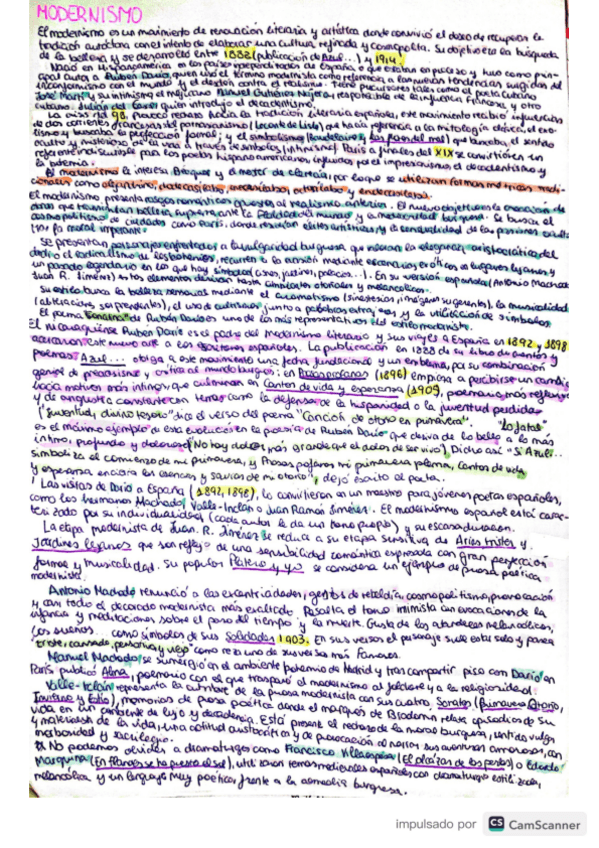 MODERNISMO
El modernismo es un movimiento de renovación literaria y artística donde convivió el deseo de recuperar la
tradición autóctona con el intento de elaborar una cultura refinada y cosmopolita. Su objetivo era la búsqueda
de la belleza y se desarrolló entre 1888 (publicación de Azul...) y 1914.
Nació en Hispanoamérica, en los países independizados de España, y tuvo como prin-
cipal autor a Rubén Darío, quien usó el término modernista como referencia a tendencias surgidas del
inconformismo con el mundo y el desdén contra el realismo. Tiene precursores tales como el poeta cubano
José Martí y el mejicano Manuel Gutiérrez Nájera, responsable de la influencia francesa, y otro
cubano, Julián del Casal quien introdujo el decadentismo.
La crisis del 98, provocó hacia la tradición literaria española, este movimiento recibió influencias
de dos corrientes francesas: el parnasianismo (Leconte de Lisle) que hacía referencia a la mitología clásica, el exo-
tismo y buscaba la perfección formal; el simbolismo (Baudelaire y Las flores del mal) que buscaba el sentido
oculto y misterioso de la vida a través de símbolos. París a finales del XIX se convirtió en un
referente indiscutible para los poetas hispanoamericanos influidos por el impresionismo, el decadentismo y
la bohemia.
Al modernismo le interesa Bécquer y el mester de clerecía, por lo que se utilizan formas métricas tradi-
cionales como alejandrino, dodecasílabos, eneasílabos, octosílabos y endecasílabos.
El modernismo presenta rasgos románticos opuestos al realismo anterior. El nuevo objetivo es la creación de
obras que transmitan belleza suprema ante la fealdad del mundo y la mediocridad burguesa. Se busca el
cosmopolitismo de ciudades como París, donde residían élites artísticas y la sensualidad de las pasiones
la moral imperante.
Se presentan personajes enfrentados a la vulgaridad burguesa que valoran la elegancia aristocrática del
dandi o el radicalismo de los bohemios, recurren a la evasión mediante escenarios exóticos en lugares lejanos y
un pasado legendario en los que hay símbolos (cisnes, jardines, palacios...). En su versión española (Antonio Machado,
Juan R. Jiménez) estos elementos derivan hacia símbolos otoñales y melancólicos.
Su estilo busca la belleza sensorial mediante el cromatismo (sinestesias, imágenes sugerentes), la musicalidad
(aliteraciones sorprendentes), el uso de cultismos junto a palabras extrañas y la utilización de símbolos.
El poema "Sonatina" de Rubén Darío es uno de los más representativos del estilo modernista.
El nicaragüense Rubén Darío es el padre del modernismo literario y sus viajes a España en 1892 y 1898
acercaron este nuevo arte a los escritores españoles. La publicación en 1888 de su libro de cuentos y
poemas Azul... otorga a este movimiento una fecha fundacional y un emblema, por su combinación
genial de preciosismo y crítica al mundo burgués; en Prosas profanas (1896) empieza a percibirse un cambio
hacia motivos más íntimos que culminará en Cantos de vida y esperanza (1905), poemario más reflexivo
y de angustia constante con temas como la defensa de la hispanidad o la juventud perdida
("Juventud, divino tesoro" dice el verso del poema "Canción de otoño en primavera". "Lo fatal"
es el máximo ejemplo de esta evolución en la poesía de Rubén Darío que deriva de lo bello a lo más
íntimo, profundo y doloroso ("No hay dolor más grande que el dolor de ser vivo). Dicho así "Si Azul...
simboliza el comienzo de mi primavera, y Prosas profanas mi primavera plena, Cantos de vida
y esperanza encierra las esencias y savias de mi otoño", dejó escrito el poeta.
Las visitas de Darío a España (1892, 1898), lo convirtieron en un maestro para jóvenes poetas españoles,
como los hermanos Machado, Valle-Inclán o Juan Ramón Jiménez. El modernismo español está carac-
terizado por su individualidad (cada autor le da un tono propio) y su escasa duración.
La etapa modernista de Juan. R. Jiménez se reduce a su etapa sensitiva de Arias tristes y
Jardines lejanos que son reflejo de una sensibilidad romántica expresada con gran perfección
formal y musicalidad. Su popular Platero y yo se considera un ejemplo de prosa poética
modernista.
Antonio Machado renunció a las excentricidades, gestos de rebeldía, cosmopolitismo, provocación
y con todo el decorado modernista más exaltado. Resalta el tono intimista con evocaciones de la
infancia y meditaciones sobre el paso del tiempo y la muerte. Gusta de los atardeceres melancólicos,
los sueños como símbolos de sus Soledades 1903. En sus versos el paisaje sufre esta solo y parece
"triste, cansado, pensativo y viejo" como reza uno de sus versos más famosos.
Manuel Machado, se sumergió en el ambiente bohemio de Madrid y tras compartir piso con Darío en
París publicó Alma, poemario con el que traspasó el modernismo al folclore y a la religiosidad.
Valle-Inclán representa la cumbre de la prosa modernista con sus cuatro Sonatas (Primavera, Otoño,
Invierno y Estío), memorias de prosa poética donde el marqués de Bradomín relata episodios de su
vida en un ambiente de lujo y decadencia. Está presente el rechazo de la moral burguesa, sentido vulgar
y materialista de la vida, una actitud aristocrática y de provocación al narrar sus aventuras amorosas, con
morbosidad y sacrilegio.
No podemos olvidar a dramaturgos como Francisco Villaespesa (El alcázar de las perlas) o Eduardo
Marquina (En Flandes se ha puesto el sol), utilizaron temas medievales españoles con dramaturgia estilizada,
melancólica y un lenguaje muy poético, frente a la comedia burguesa.
impulsado por CS CamScanner